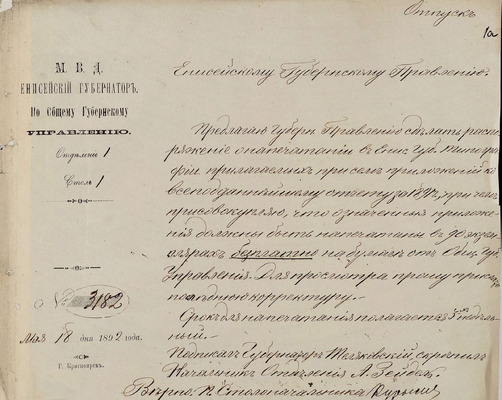 Отпускъ
1а
М. В. Д.
ЕНИСЕЙСКІЙ ГУБЕРНАТОРЪ.
По Общему Губернскому
УПРАВЛЕНІЮ.
Отдѣленіе 1
Столъ 1
№ 3182
Мая 18 дня 1892 года.
Г. Красноярскъ.
Енисейскому Губернскому Правленію.
Предлагаю Губерн. Правленію сдѣлать распо-
ряженіе о напечатаніи въ Енис. Губ. Типогра-
фіи прилагаемыхъ при семъ приложеній ко
всеподданнѣйшему отчету за 1891 г., при чемъ
присовокупляю, что означенныя приложе-
нія должны быть напечатаны въ 90 экзем-
плярахъ безплатно на бумагѣ отъ Общ. Губ.
Управленія. Для просмотра прошу
послѣднюю корректуру.
Срокъ для напечатанія полагается
Подписалъ Губернаторъ Теляковскій, скрѣпилъ
Начальникъ Отдѣленія А. Зейдель.
Вѣрно: Столоначальника